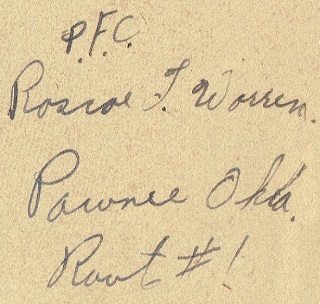 P.F.C.
Roscoe T. Worren.
Pawnee Okla.
Root #1